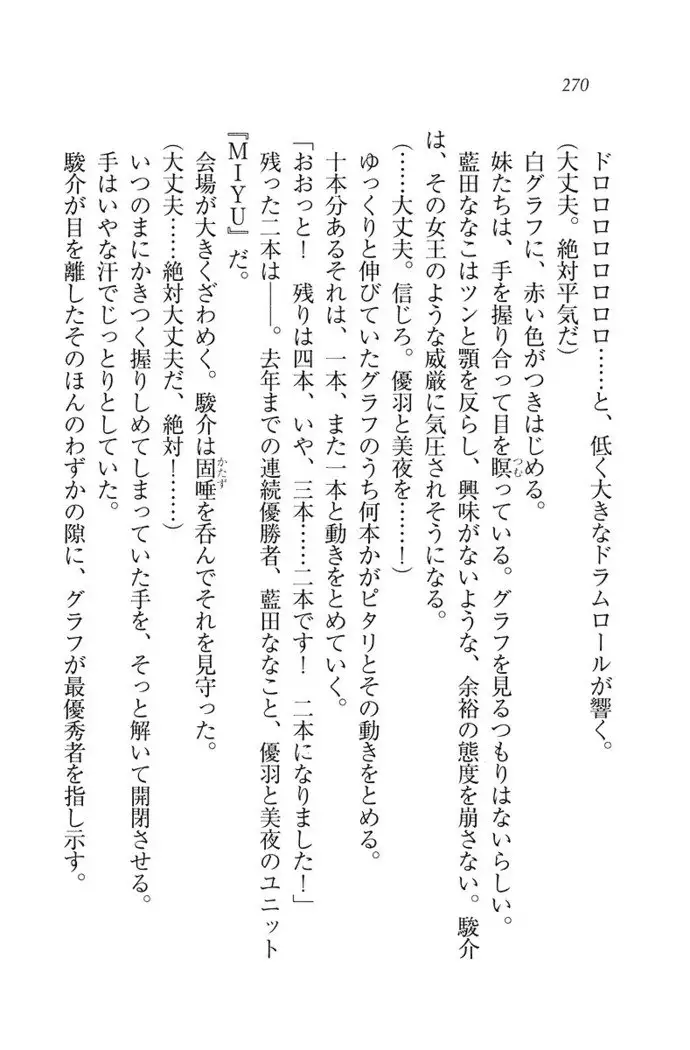 270
ドロロロロロロロ……と、低く大きなドラムロールが響く。
(大丈夫。絶対平気だ)
白グラフに、赤い色がつきはじめる。
妹たちは、手を握り合って目を瞑っている。グラフを見るつもりはないらしい。
藍田ななこはツンと顎を反らし、興味がないような、余裕の態度を崩さない。駿介
は、その女王のような威厳に気圧されそうになる。
(……大丈夫。信じろ。優羽と美夜を……！)
ゆっくりと伸びていたグラフのうち何本かがピタリとその動きをとめる。
十本分あるそれは、一本、また一本と動きをとめていく。
「おおっと！　残りは四本、いや、三本……二本です！　二本になりました！」
残った二本は――。去年までの連続優勝者、藍田ななこと、優羽と美夜のユニット
『ＭＩＹＵ』だ。
会場が大きくざわめく。駿介は固唾を呑んでそれを見守った。
(大丈夫……絶対大丈夫だ、絶対！……)
いつのまにかきつく握りしめてしまっていた手を、そっと解いて開閉させる。
手はいやな汗でじっとりとしていた。
駿介が目を離したそのほんのわずかの隙に、グラフが最優秀者を指し示す。